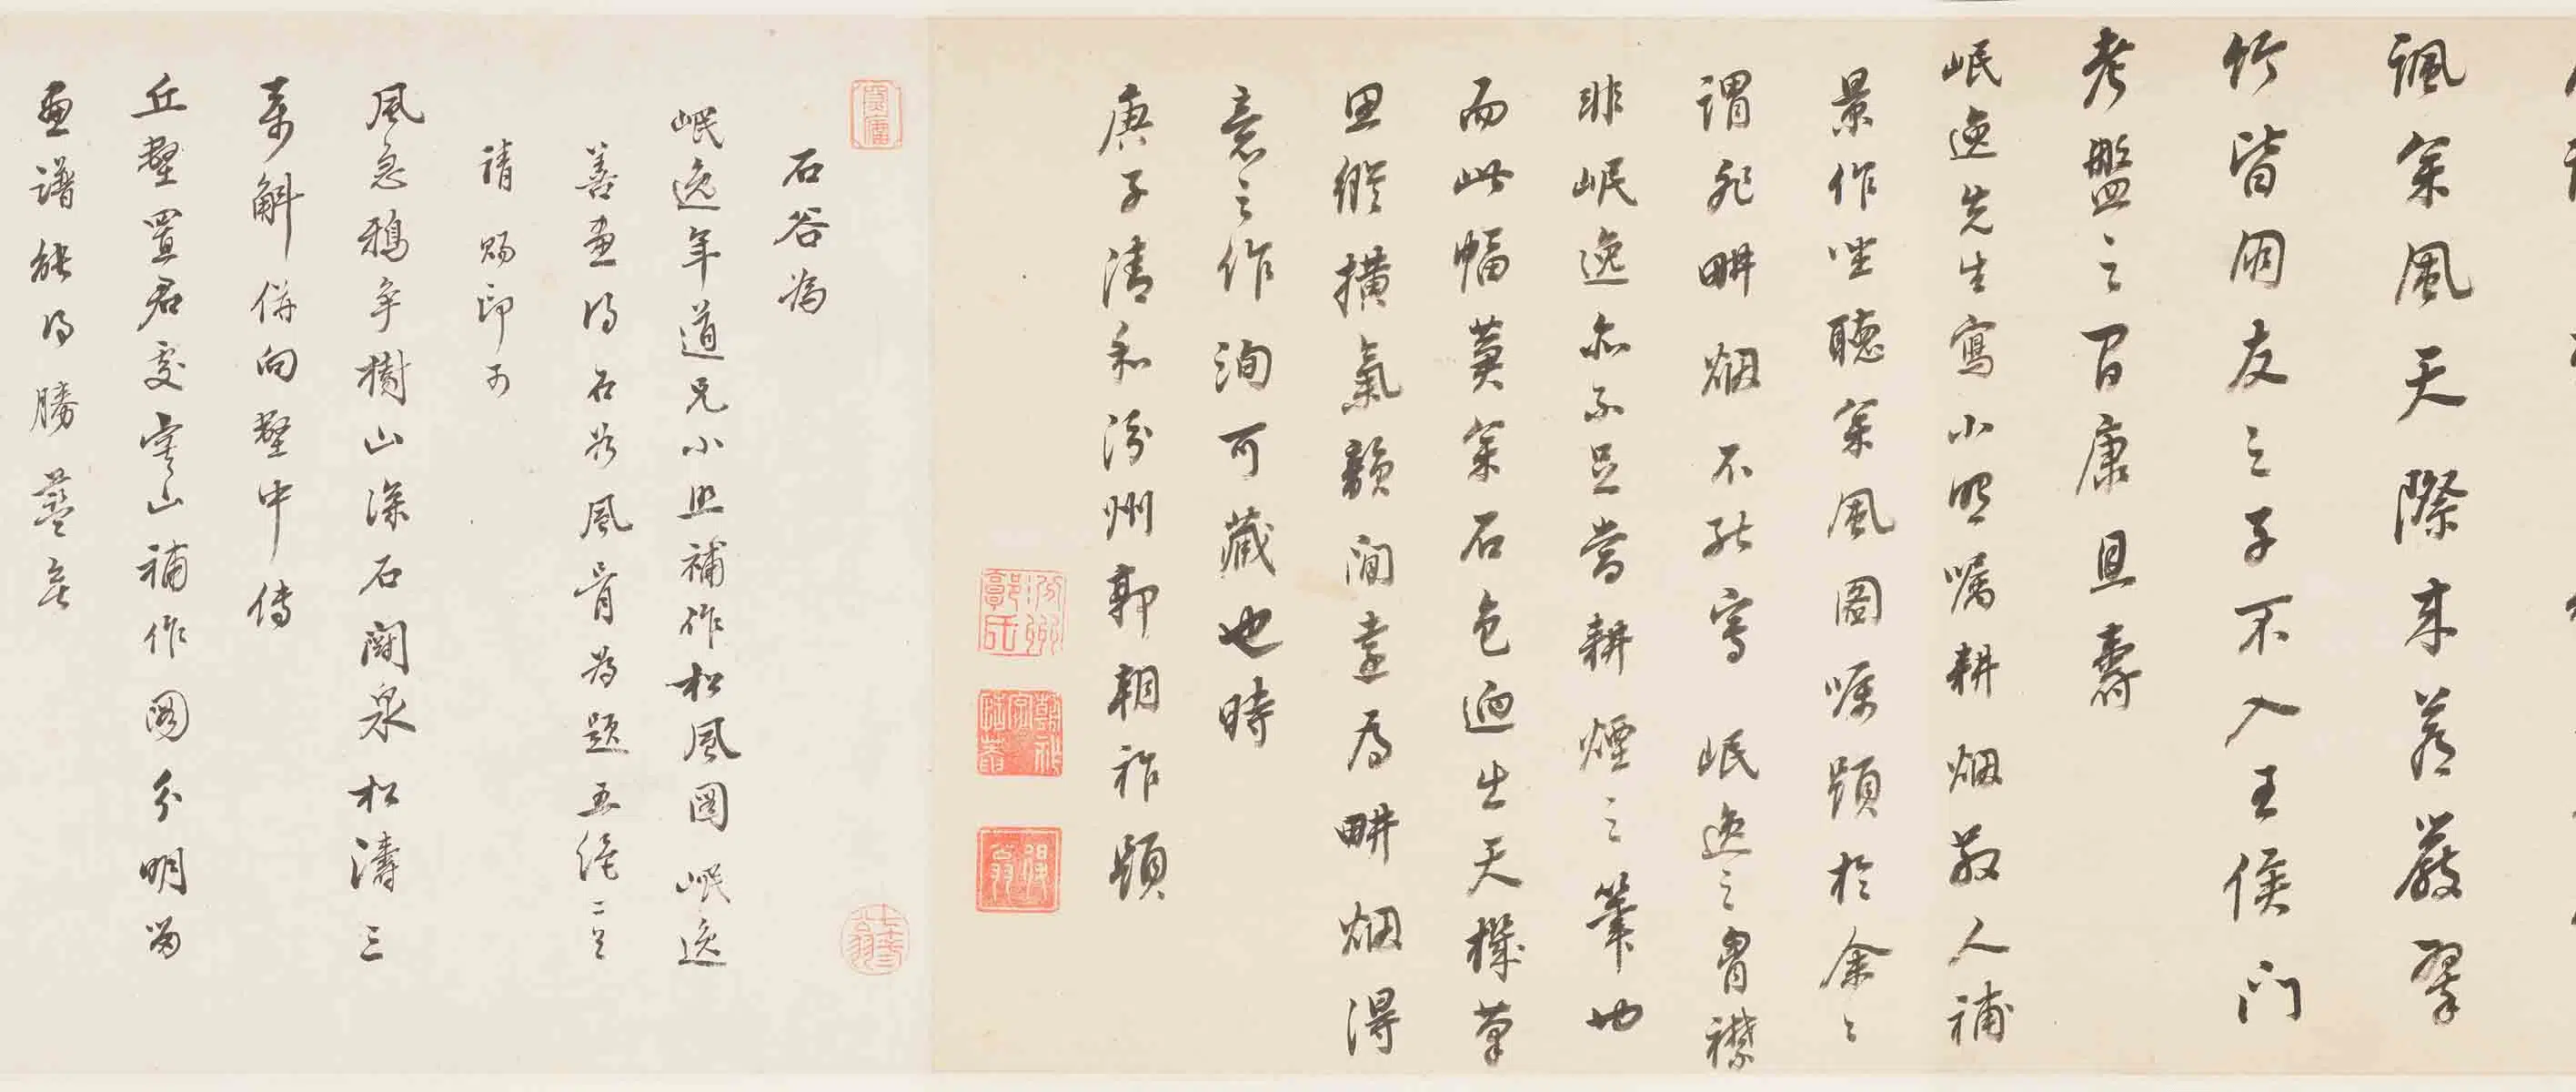 颯衆風天際來蒼巖翠
竹皆因友之子不入王侯門
考盤之間康且壽
岷逸先生寫小照嘱耕烟散人補
景作坐聽衆風圖嘱題於余〻
謂非畊烟不能寫 岷逸之胷襟
非岷逸亦不足當耕煙之筆也
而此幅萬衆石色迴出天機筆
思縱横氣韻閒遠為畊烟得
意之作洵可藏也時
庚子清和汾州郭朝祚題
石谷為
岷逸年道兄小照補作松風圖岷逸
善畫得石谷風骨為題五絶二首
請賜印可
風急鴉争樹山深石鬭泉松濤三
萬斛併向壑中傳
丘壑置君處寒山補作圖分明留
畫譜能得勝藍無